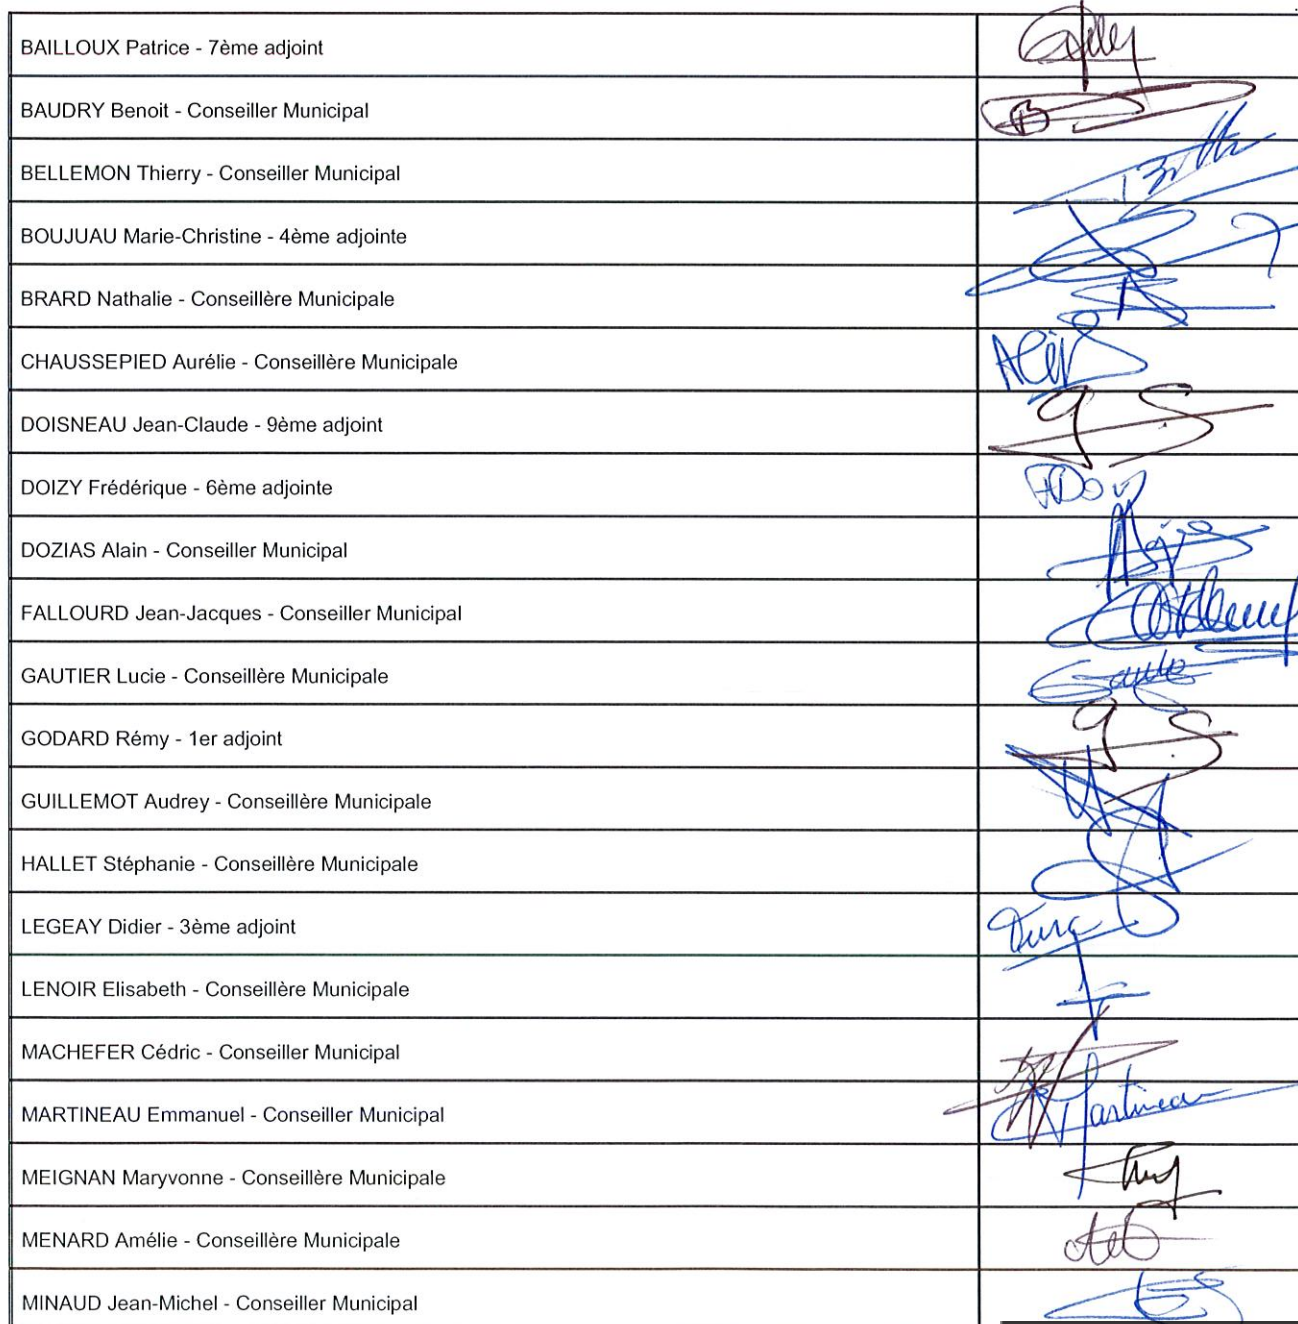 BAILLOUX Patrice - 7ème adjoint
BAUDRY Benoit - Conseiller Municipal
BELLEMON Thierry - Conseiller Municipal
BOUJUAU Marie-Christine - 4ème adjointe
BRARD Nathalie - Conseillère Municipale
CHAUSSEPIED Aurélie - Conseillère Municipale
DOISNEAU Jean-Claude - 9ème adjoint
DOIZY Frédérique - 6ème adjointe
DOZIAS Alain - Conseiller Municipal
FALLOURD Jean-Jacques - Conseiller Municipal
GAUTIER Lucie - Conseillère Municipale
GODARD Rémy - 1er adjoint
GUILLEMOT Audrey - Conseillère Municipale
HALLET Stéphanie - Conseillère Municipale
LEGEAY Didier - 3ème adjoint
LENOIR Elisabeth - Conseillère Municipale
MACHEFER Cédric - Conseiller Municipal
MARTINEAU Emmanuel - Conseiller Municipal Martineau
MEIGNAN Maryvonne - Conseillère Municipale
MENARD Amélie - Conseillère Municipale
MINAUD Jean-Michel - Conseiller Municipal